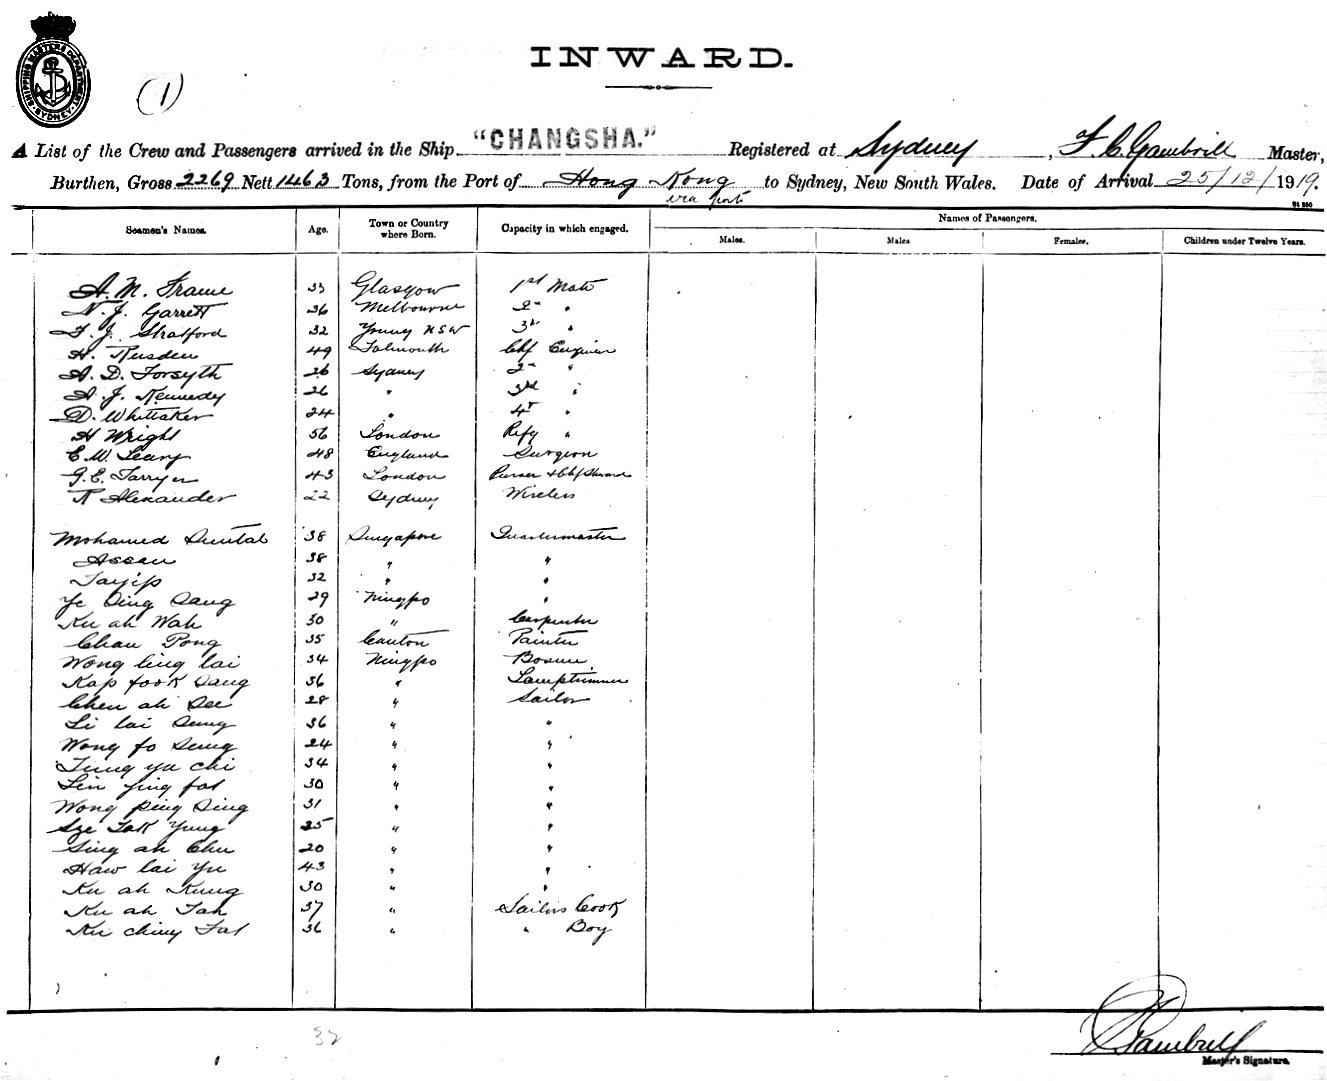 SHIPPING MASTERS DEPARTMENT SYDNEY
(1)
INWARD.
A List of the Crew and Passengers arrived in the Ship "CHANGSHA." Registered at Sydney, F. C. Gambrill Master,
Burthen, Gross 2269 Nett 1463 Tons, from the Port of Hong Kong to Sydney, New South Wales. Date of Arrival 25/12/1919.
via ports
Seamen's Names. Age. Town or Country where Born. Capacity in which engaged. Names of Passengers.
Males. Males Females. Children under Twelve Years.
A. M. Frame 33 Glasgow 1st Mate
N. J. Garrett 36 Melbourne 2nd "
F. J. Stratford 32 Young NSW 3rd "
H. Rusden 49 Falmouth Chf Engineer
A. D. Forsyth 26 Sydney 2nd "
A. J. Kennedy 26 " 3rd "
D. Whittaker 24 " 4th "
H Wright 56 London Refg "
E. W. Leary 48 England Surgeon
G. E. Tarryer 43 London Purser & Chf Steward
R Alexander 22 Sydney Wireless
Mohamed Suntal 38 Singapore Quartermaster
Assan 38 " "
Tayip 32 " "
Ye Sing Sang 29 Ningpo "
Ku ah Wah 30 " Carpenter
Chau Pong 35 Canton Painter
Wong ling lai 34 Ningpo Bosun
Kap fook Sang 36 " Lamptrimmer
Chen ah See 28 " Sailor
Li lai Sung 36 " "
Wong fo Sung 24 " "
Tung yu chi 34 " "
Lin ying fat 30 " "
Wong ping Sing 31 " "
Sze Tak Yung 25 " "
Sing ah Chu 20 " "
Haw lai Yu 43 " "
Ku ah Kung 30 " "
Ku ah Tah 37 " Sailors Cook
Ku ching Fat 36 " " Boy
32
F C Gambrill
Master's Signature.